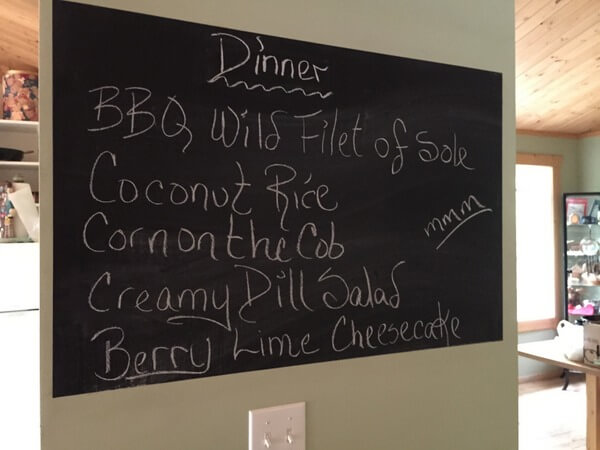 Dinner
BBQ Wild Filet of Sole
Coconut Rice
Corn on the Cob
mmm
Creamy Dill Salad
Berry Lime Cheesecake